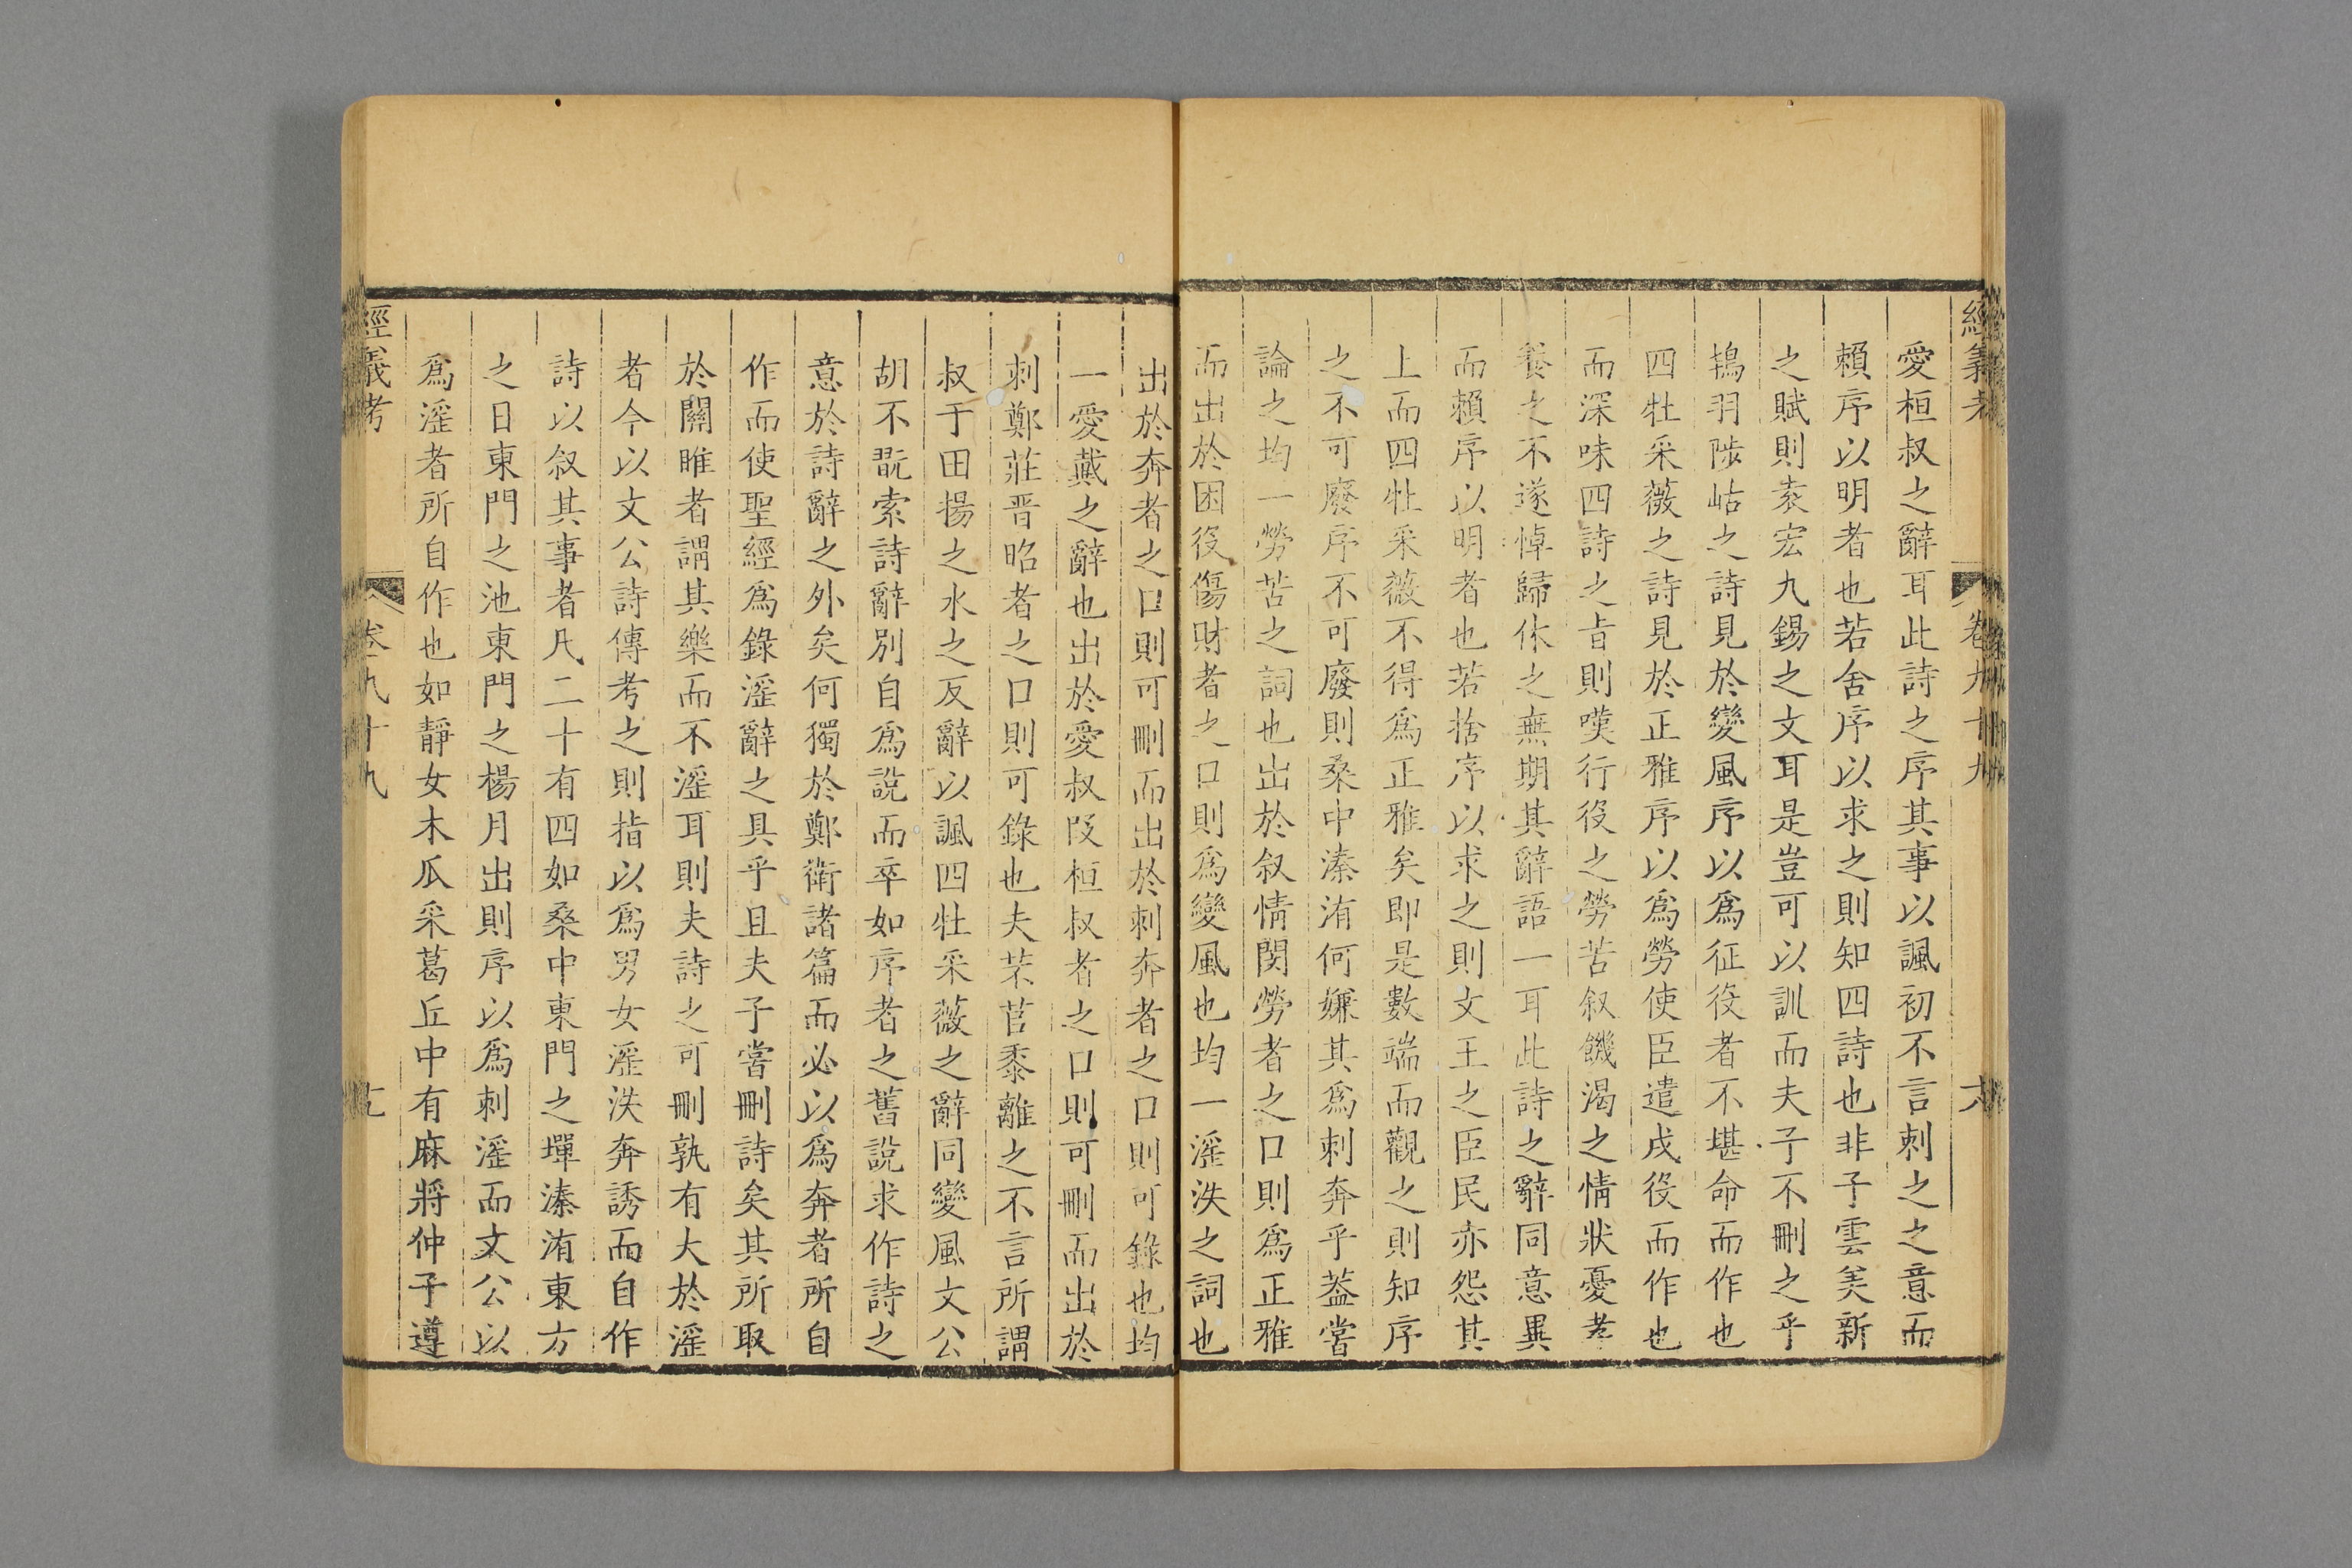 經義考
卷九十九
六
愛桓叔之辭耳此詩之序其事以諷初不言刺之之意而
賴序以明者也若舍序以求之則知四詩也非子雲美新
之賦則袁宏九錫之文耳是豈可以訓而夫子不刪之乎
鴇羽陟岵之詩見於變風序以爲征役者不堪命而作也
四牡采薇之詩見於正雅序以爲勞使臣遣戍役而作也
而深味四詩之旨則嘆行役之勞苦叙饑渴之情狀憂孝
養之不遂悼歸休之無期其辭語一耳此詩之辭同意異
而賴序以明者也若捨序以求之則文王之臣民亦怨其
上而四牡采薇不得爲正雅矣即是數端而觀之則知序
之不可廢序不可廢則桑中溱洧何嫌其爲刺奔乎葢嘗
論之均一勞苦之詞也出於叙情閔勞者之口則爲正雅
而出於困役傷財者之口則爲變風也均一滛泆之詞也
出於奔者之口則可刪而出於刺奔者之口則可錄也均
一愛戴之辭也出於愛叔段桓叔者之口則可刪而出於
刺鄭莊晋昭者之口則可錄也夫芣苢黍離之不言所謂
叔于田揚之水之反辭以諷四牡采薇之辭同變風文公
胡不翫索詩辭別自爲說而卒如序者之舊說求作詩之
意於詩辭之外矣何獨於鄭衛諸篇而必以爲奔者所自
作而使聖經爲錄滛辭之具乎且夫子嘗刪詩矣其所取
於關睢者謂其樂而不滛耳則夫詩之可刪孰有大於滛
者今以文公詩傳考之則指以爲男女滛泆奔誘而自作
詩以叙其事者凡二十有四如桑中東門之墠溱洧東方
之日東門之池東門之楊月出則序以爲刺滛而文公以
爲滛者所自作也如靜女木瓜采葛丘中有麻將仲子遵
經義考
卷九十九